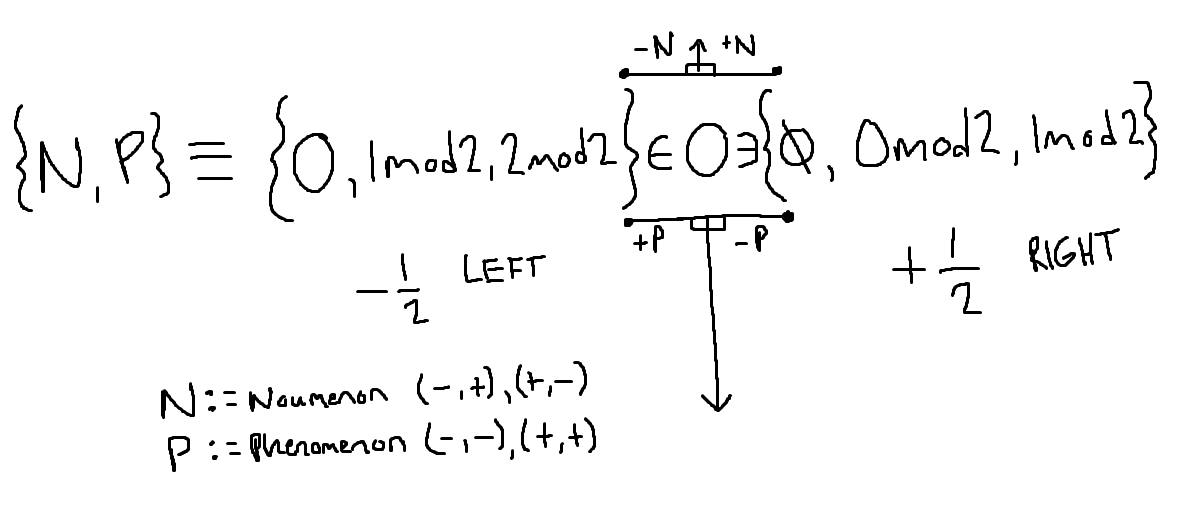 -N +N
{N, P} ≡ {0, 1mod2, 2mod2} ∈ O ∋ {∅, 0mod2, 1mod2}
+P -P
-1/2 LEFT +1/2 RIGHT
N := Noumenon (-,+),(+,-)
P := Phenomenon (-,-),(+,+)